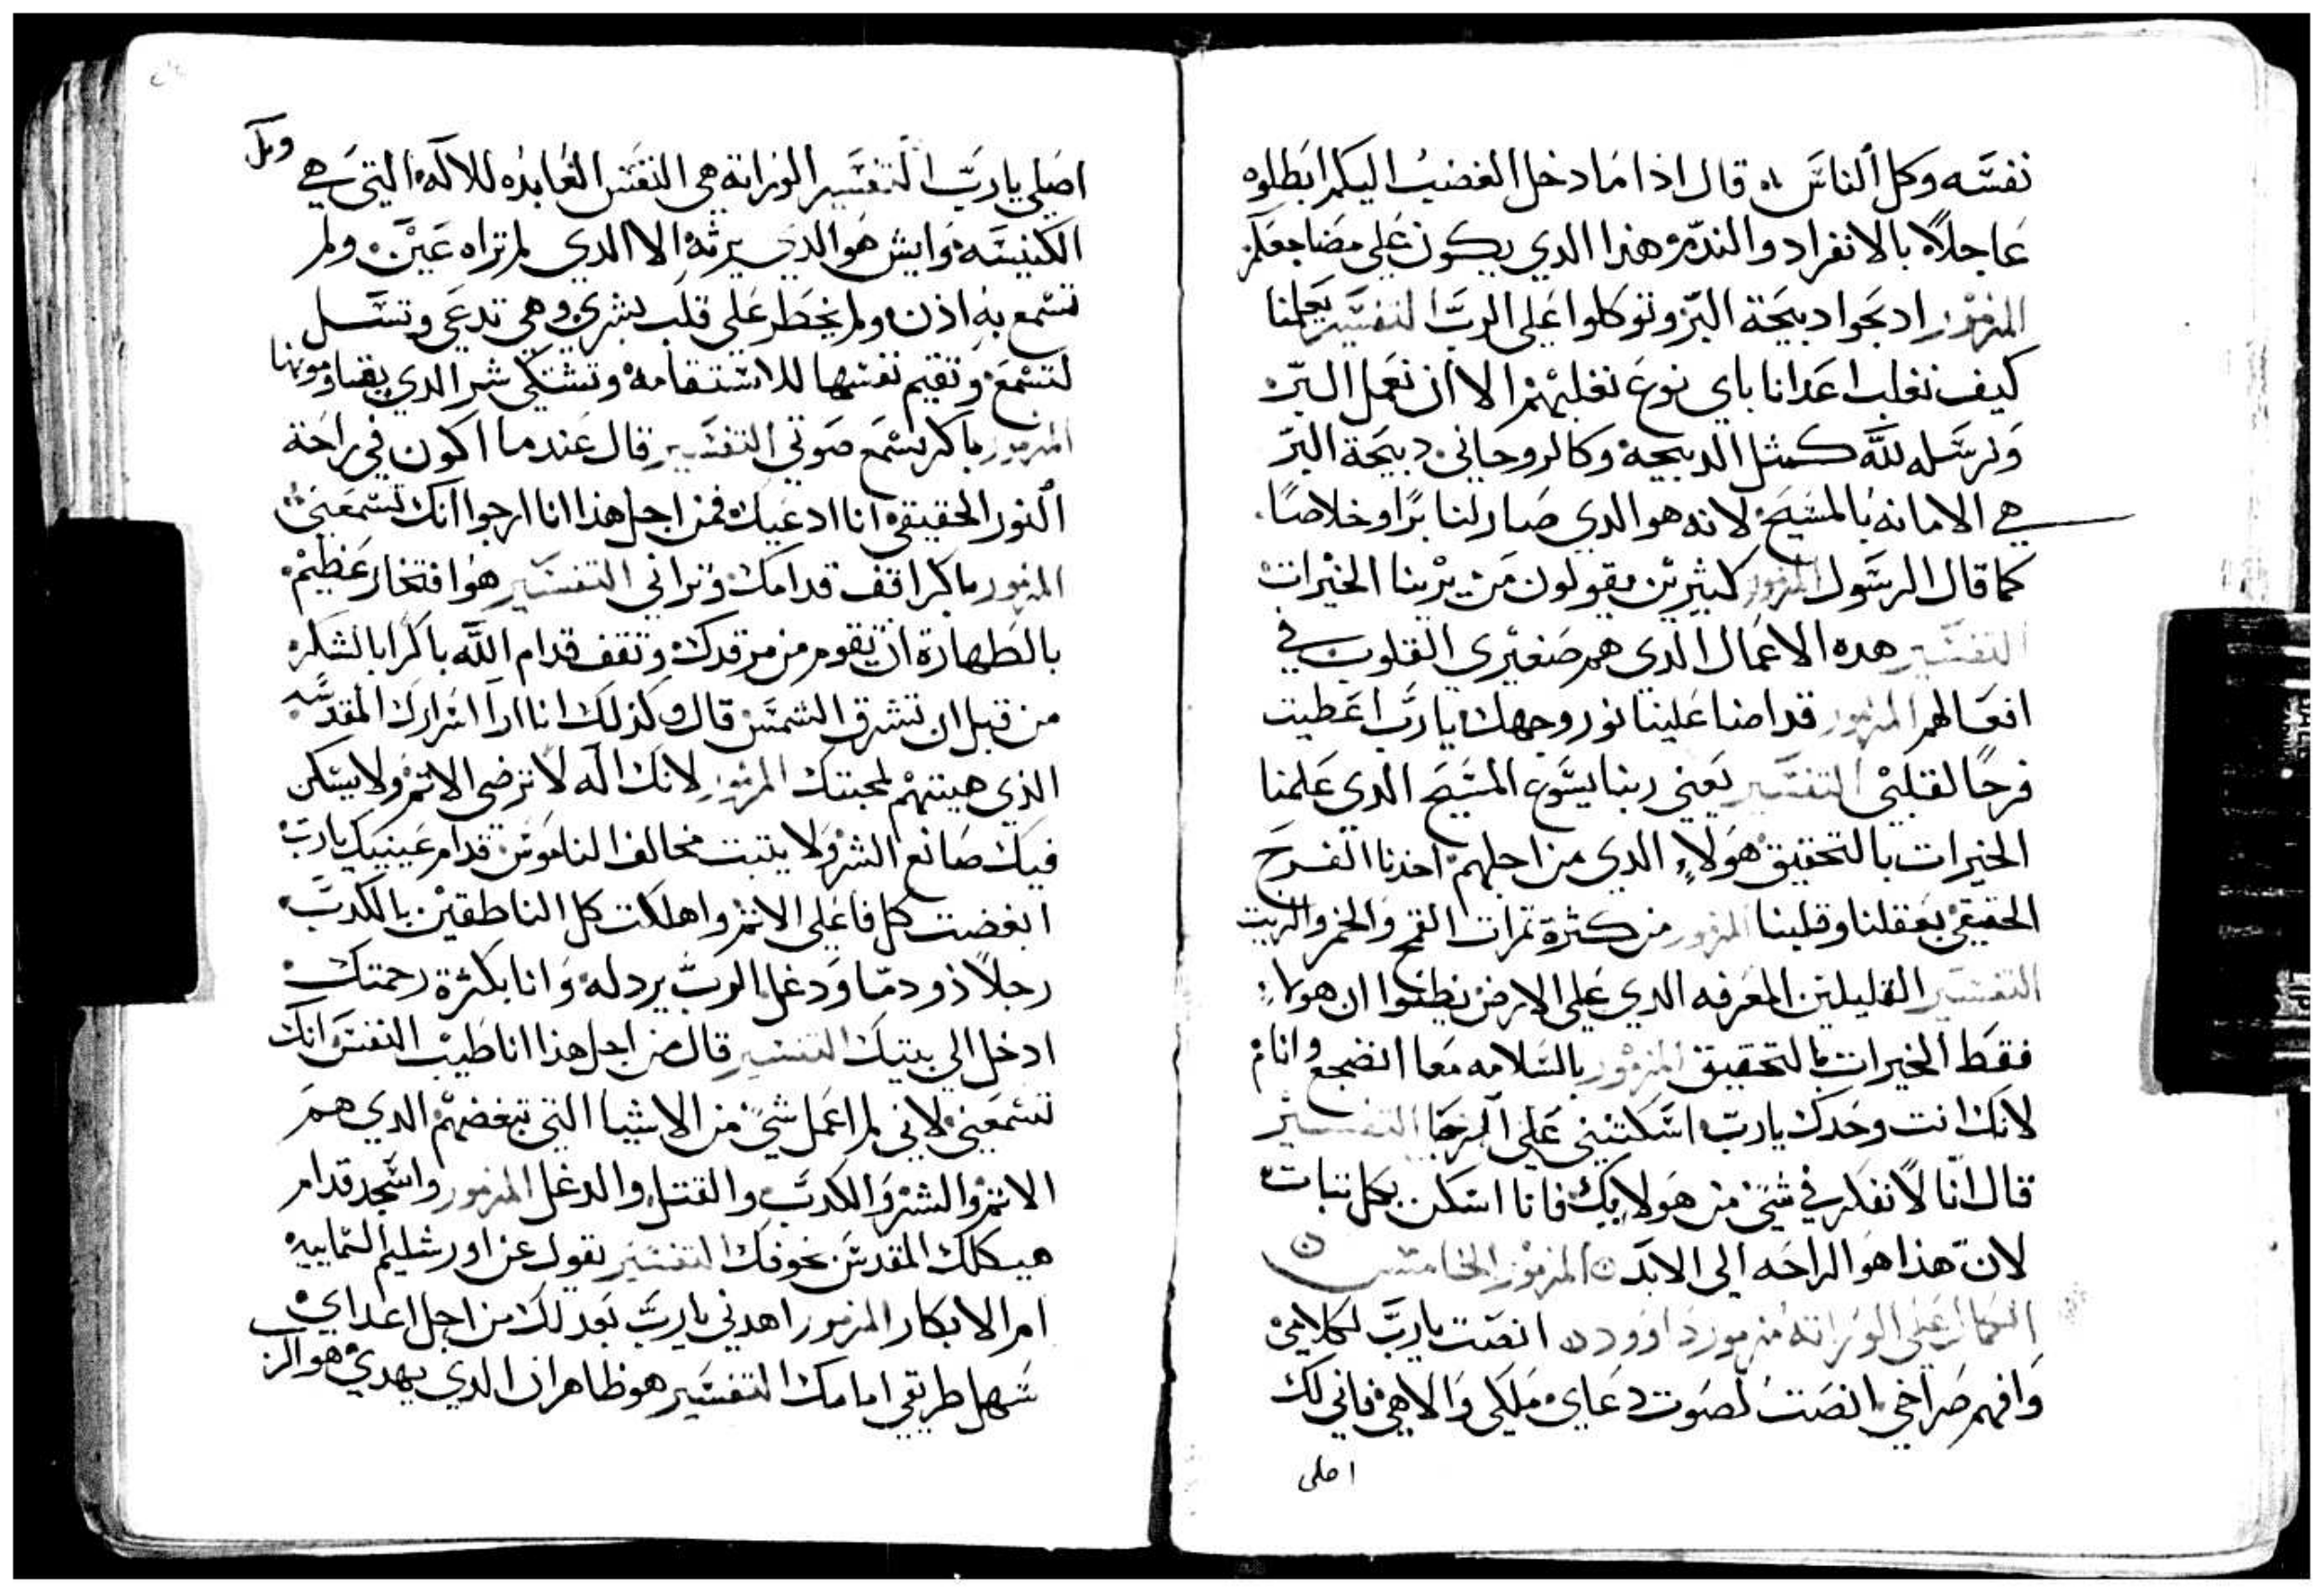 نفسه وكل الناس قال اذا ما دخل الغضب اليكم ابطلوه
عاجلاً بالانفراد والندم هذا الدي يكون على مضاجعكم
المزمور ادبحوا دبيحة البرّ وتوكلوا على الربّ التفسير يعلمنا
كيف نغلب اعدانا باي نوع نغلبهم الا ان نعمل البرّ
ونرسله للّه كمثل الدبيحه وكالروحاني دبيحة البرّ
هي الامانه بالمسيح لانه هو الدي صار لنا برًا وخلاصًا
كما قال الرسول المزمور كثيرين يقولون من يرينا الخيرات
التفسير هده الاعمال الدي هم صغيري القلوب في
افعالهم المزمور قد اضا علينا نور وجهك يا ربّ اعطيت
فرحًا لقلبي التفسير يعني ربنا يسوع المسيح الدي علمنا
الخيرات بالتحقيق هولاء الدي من اجلهم اخدنا الفرح
الحقيقي بعقلنا وقلبنا المزمور من كثرة تمرات القمح والخمر والزيت
التفسير القليلين المعرفه الدي على الارض يظنوا ان هولاء
فقط الخيرات بالتحقيق المزمور بالسلامه معا انضجع وانام
لانك انت وحدك يا ربّ اسكنتني على الرجا التفسير
قال انا لا نفكر في شي من هولاييك فانا اسكن بكل تبات
لانّ هذا هو الراحه الى الابد المزمور الخامس
الكمال على الوراثه مزمور داوود انصت يا ربّ لكلامي
وافهم صراخي انصت لصوت دعاي ملكي والاهي فاني لك
اصلى
اصلي يا ربّ التفسير الوراثة هي النفس العابده للاله التي هي
الكنيسه وايش هو الدي يرثه الا الدي لم تراه عين ولم
تسمع به اذن ولم يخطر على قلب بشري وهي تدعي وتسل
لتسمع وتقيم نفسها للاستقامه وتشتكي شر الدي يقاومونها
المزمور باكر تسمع صوتي التفسير قال عندما اكون في راحة
النور الحقيقي انا ادعيك فمن اجل هذا انا ارجوا انك تسمعني
المزمور باكر اقف قدامك وتراني التفسير هو افتخار عظيم
بالطهارة ان تقوم من مرقدك وتقف قدام اللّه باكرا بالشكر
من قبل ان تشرق الشمس قال وكذلك انا ارا اسرارك المقدسه
الذي هيتهم لمحبتك المزمور لانك اله لا ترضى الاتم ولا يسكن
فيك صانع الشر ولا يتبت مخالف الناموس قدام عينيك يا ربّ
ابغضت كل فاعلي الاتم واهلكت كل الناطقين بالكدب
رجلاً ذو دمًا ودغل الربّ يردله وانا بكثرة رحمتك
ادخل الى بيتك التفسير قال من اجل هذا انا طيب النفس انك
تسمعني لاني لم اعمل شي من الاشيا التي تبغضهم الدي هم
الاتم والشر والكدب والقتل والدغل المزمور واسجد قدام
هيكلك المقدس بخوفك التفسير يقول عن اورشليم السماييه
ام الابكار المزمور اهدني يا ربّ بعدلك من اجل اعداي
سهل طريقي امامك التفسير هو ظاهر ان الدي يهدي هو الرب